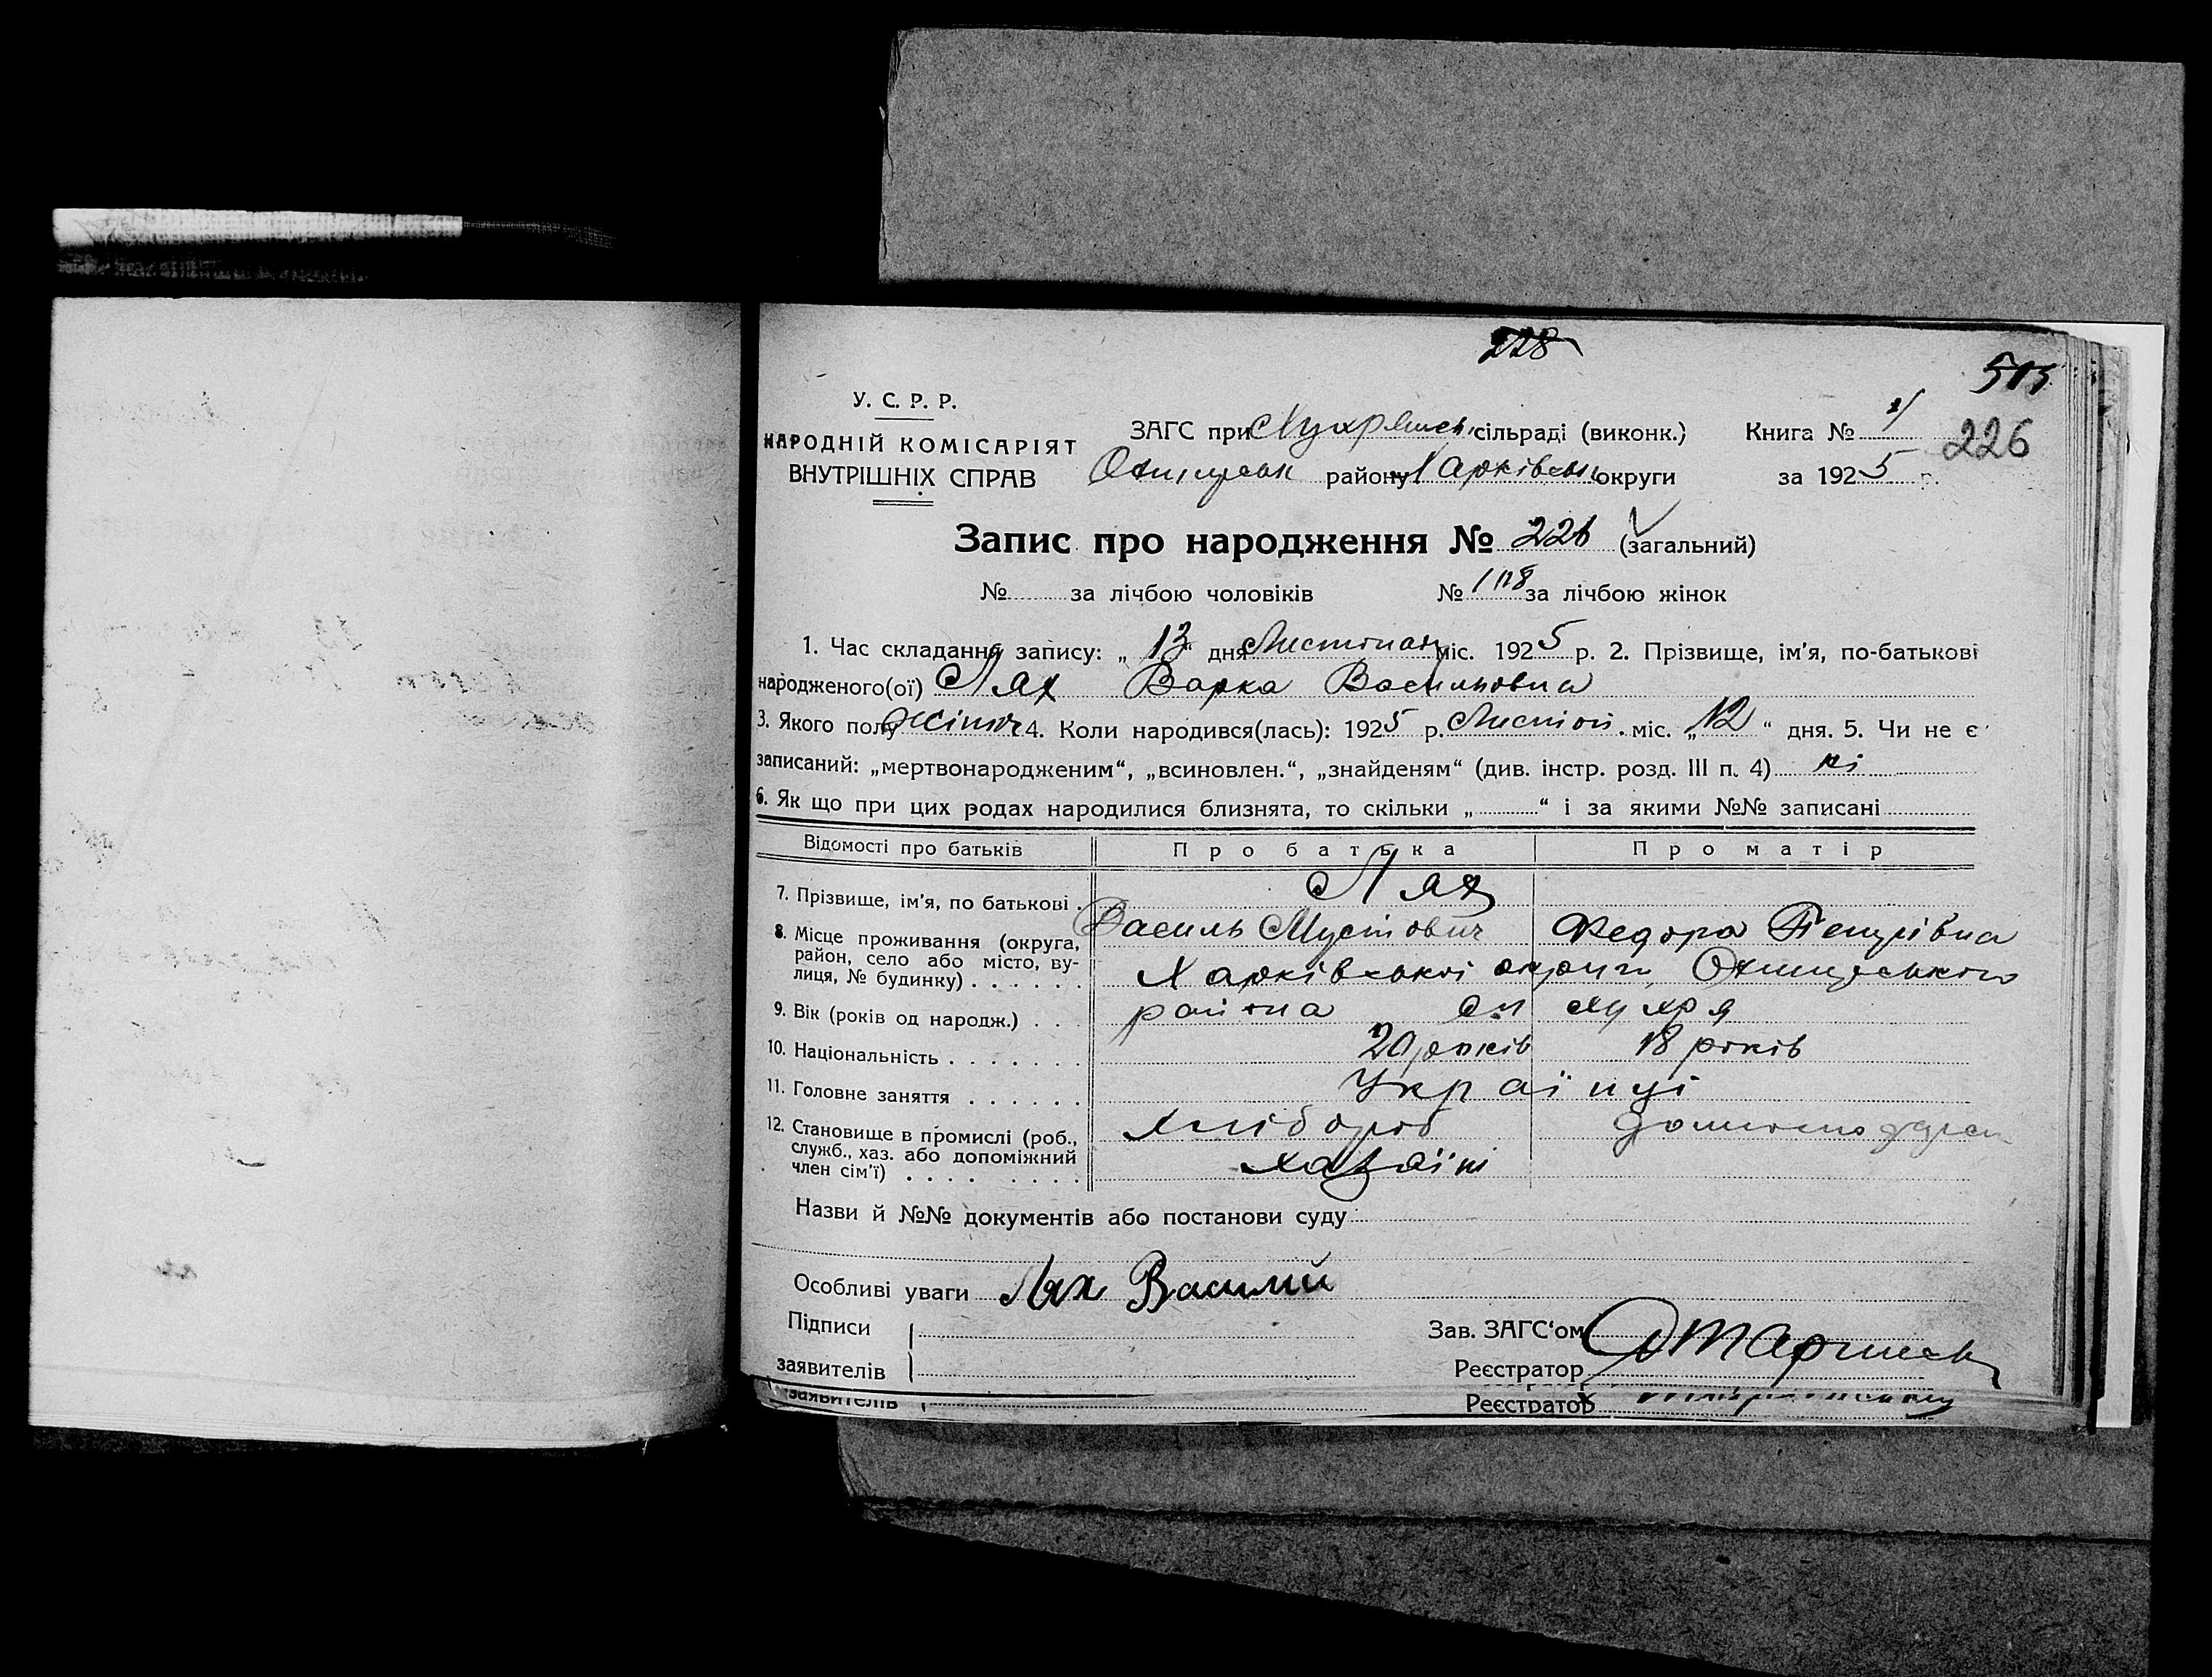 228
505
У. С. Р. Р.
НАРОДНІЙ КОМІСАРІЯТ
ВНУТРІШНІХ СПРАВ
ЗАГС при сільраді (виконк.)
району Харківськ округи
Книга №
226
за 1925 р.
Запис про народження № 226 (загальний)
№ за лічбою чоловіків № 108 за лічбою жінок
1. Час складання запису: „ 13 “ дня Листопад міс. 1925 р. 2. Прізвище, ім'я, по-батькові
народженого(ої) Лях Варка Васильовна
3. Якого полу жіноч 4. Коли народився(лась): 1925 р. Листоп. міс. „ 12 “ дня. 5. Чи не є
записаний: „мертвонародженим“, „всиновлен.“, „знайденям“ (див. інстр. розд. III п. 4) ні
6. Як що при цих родах народилися близнята, то скільки „ “ і за якими №№ записані
Відомості про батьків Про батька Про матір
7. Прізвище, ім'я, по батькові . Лях
Василь Федора Петрівна
8. Місце проживання (округа,
район, село або місто, ву-
лиця, № будинку) . . . . . . Харківської округи, Охтирського
района
9. Вік (років од народж.) . . .
20 років 18 років
10. Національність . . . . . .
Українці
11. Головне заняття . . . . . .
Хлібороб
12. Становище в промислі (роб.,
служб., хаз. або допоміжний
член сім'ї) . . . . . . . . хазаїні
Назви й №№ документів або постанови суду
Особливі уваги Лях Василий
Підписи
заявителів
Зав. ЗАГС'ом
Реєстратор
заявителів
Реєстратор